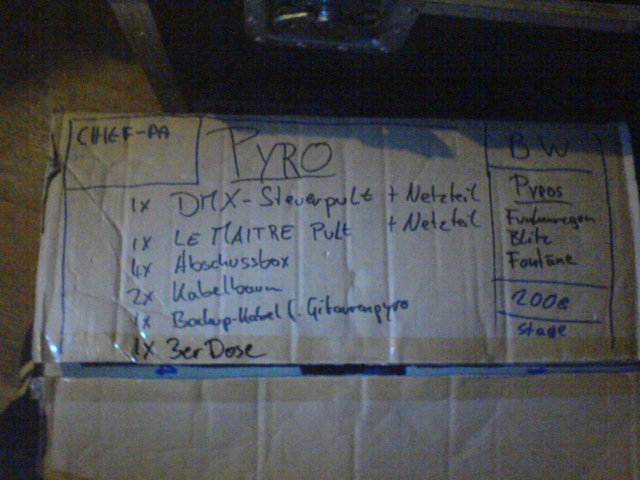 CHIEF-PA
PYRO
1x DMX-Steuerpult + Netzteil
1x LE MAITRE Pult + Netzteil
4x Abschussbox
2x Kabelbaum
1x Backup-Kabel f. Gitarrenpyro
1x 3er Dose
BW
Pyros
Funkenregen
Blitz
Fontäne
stage